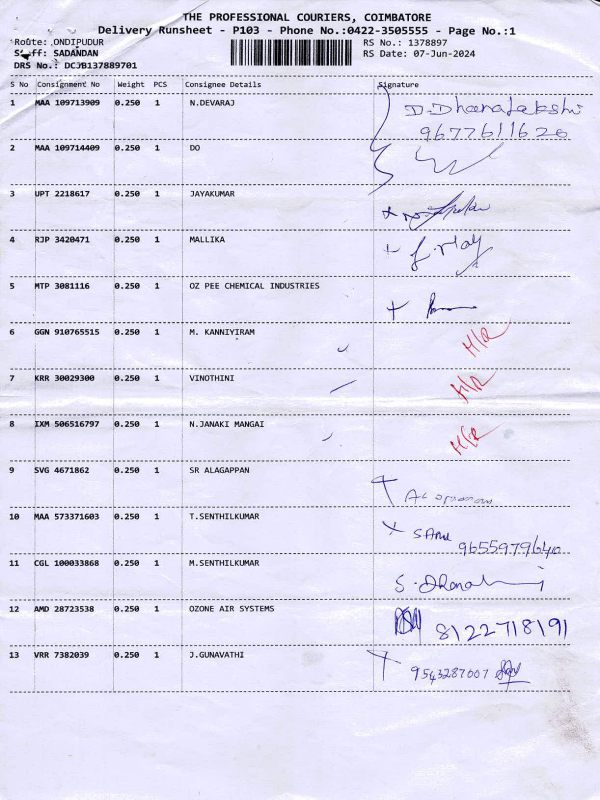 THE PROFESSIONAL COURIERS, COIMBATORE
Delivery Runsheet - P103 - Phone No.:0422-3505555 - Page No.:1
Route: ONDIPUDUR RS No.: 1378897
Staff: SADANDAN RS Date: 07-Jun-2024
DRS No.: DCJB137889701
S No Consignment No Weight PCS Consignee Details Signature
1 MAA 109713909 0.250 1 N.DEVARAJ D.Dhanalakshi
9677611620
2 MAA 109714409 0.250 1 DO
3 UPT 2218617 0.250 1 JAYAKUMAR
4 RJP 3420471 0.250 1 MALLIKA
5 MTP 3081116 0.250 1 OZ PEE CHEMICAL INDUSTRIES
6 GGN 910765515 0.250 1 M. KANNIYIRAM H/R
7 KRR 30029300 0.250 1 VINOTHINI H/R
8 IXM 506516797 0.250 1 N.JANAKI MANGAI H/R
9 SVG 4671862 0.250 1 SR ALAGAPPAN
10 MAA 573371603 0.250 1 T.SENTHILKUMAR
9655979640
11 CGL 100033868 0.250 1 M.SENTHILKUMAR
12 AMD 28723538 0.250 1 OZONE AIR SYSTEMS 8122718191
13 VRR 7382039 0.250 1 J.GUNAVATHI 9543287007